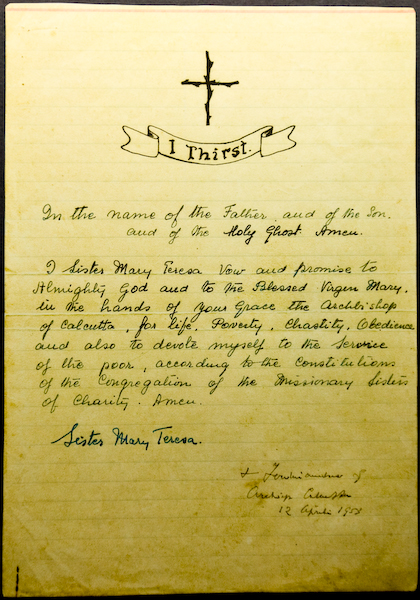 I Thirst.
In the name of the Father, and of the Son,
and of the Holy Ghost. Amen.
I Sister Mary Teresa Vow and promise to
Almighty God and to the Blessed Virgin Mary,
in the hands of Your Grace the Archbishop
of Calcutta, for life, Poverty, Chastity, Obedience
and also to devote myself to the Service
of the poor, according to the Constitutions
of the Congregation of the Missionary Sisters
of Charity. Amen.
Sister Mary Teresa.
12 April